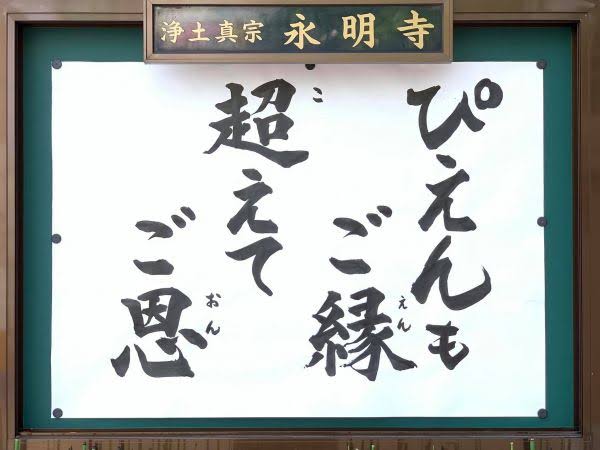 浄土真宗 永明寺
ぴえんも
ご縁
えん
超えて
こ
ご恩
おん